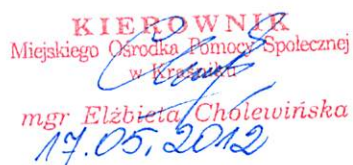 KIEROWNIK
Miejskiego Ośrodka Pomocy Społecznej
w Kraśniku
mgr Elżbieta Cholewińska
17.05.2012